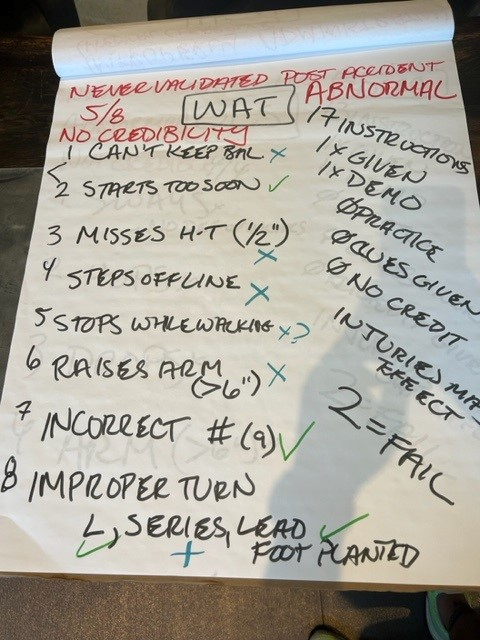 NEVER VALIDATED POST ACCIDENT
5/8 WAT ABNORMAL
NO CREDIBILITY
1 CAN'T KEEP BAL x
2 STARTS TOO SOON ✓
3 MISSES H-T (1/2")
x
4 STEPS OFFLINE x
5 STOPS WHILE WALKING x?
6 RAISES ARM
(>6") x
7 INCORRECT # (9) ✓
8 IMPROPER TURN
L, SERIES, LEAD ✓
✓ + FOOT PLANTED
17 INSTRUCTIONS
1x GIVEN
1x DEMO
Ø PRACTICE
Ø CUES GIVEN
Ø NO CREDIT
INJURIES MA
EFFECT
2 = FAIL